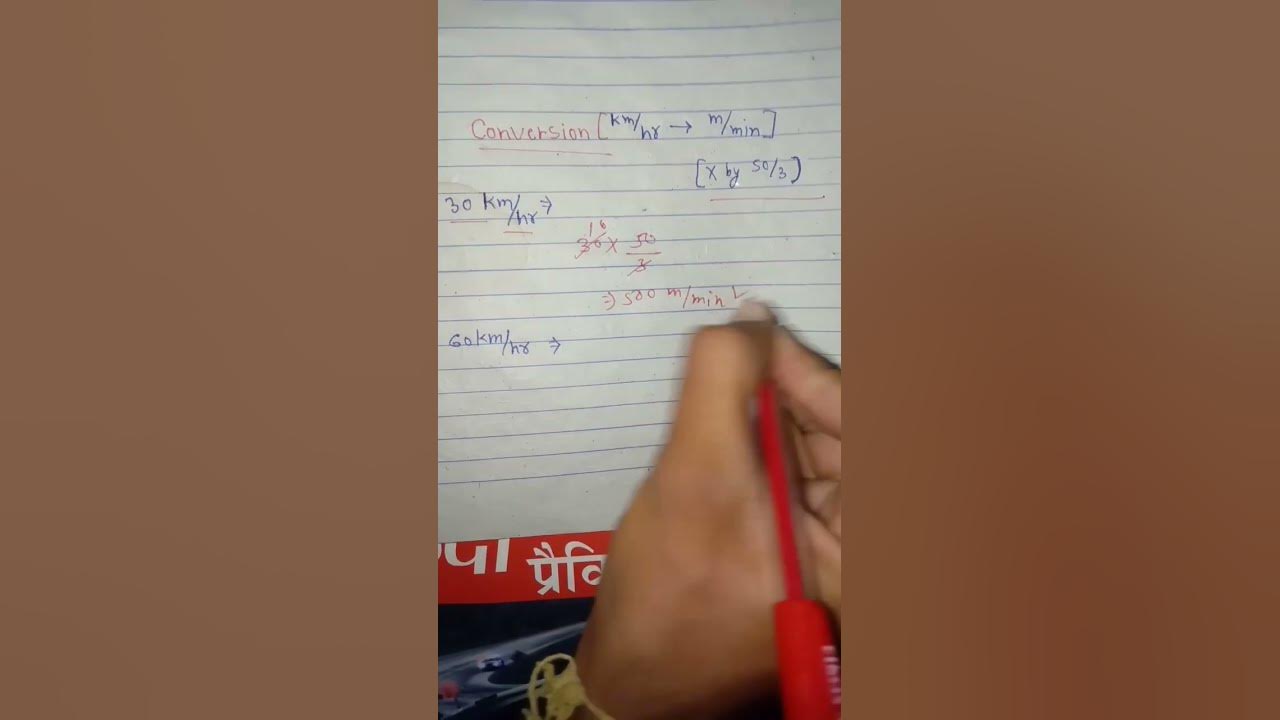 Conversion [km/hr → m/min]
[x by 50/3]
30 km/hr ⇒
10
30 x 50/3
⇒ 500 m/min ✓
60 km/hr ⇒